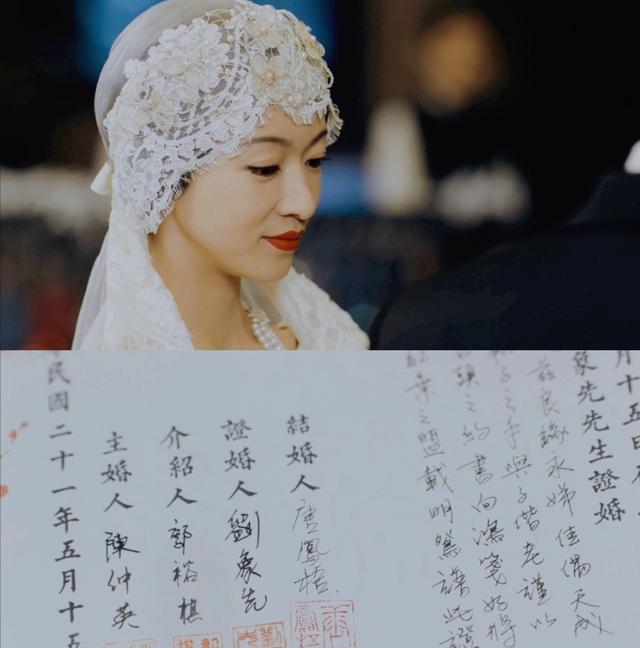 月十五日
象先先生證婚
茲良緣永娣佳偶天成
子之手與子偕老謹以
白頭之約書向鴻箋好將
紅葉之盟載明鴛譜此證
結婚人唐鳳梧
證婚人劉象先
介紹人郭裕棋
主婚人陳仲英
民國二十一年五月十五